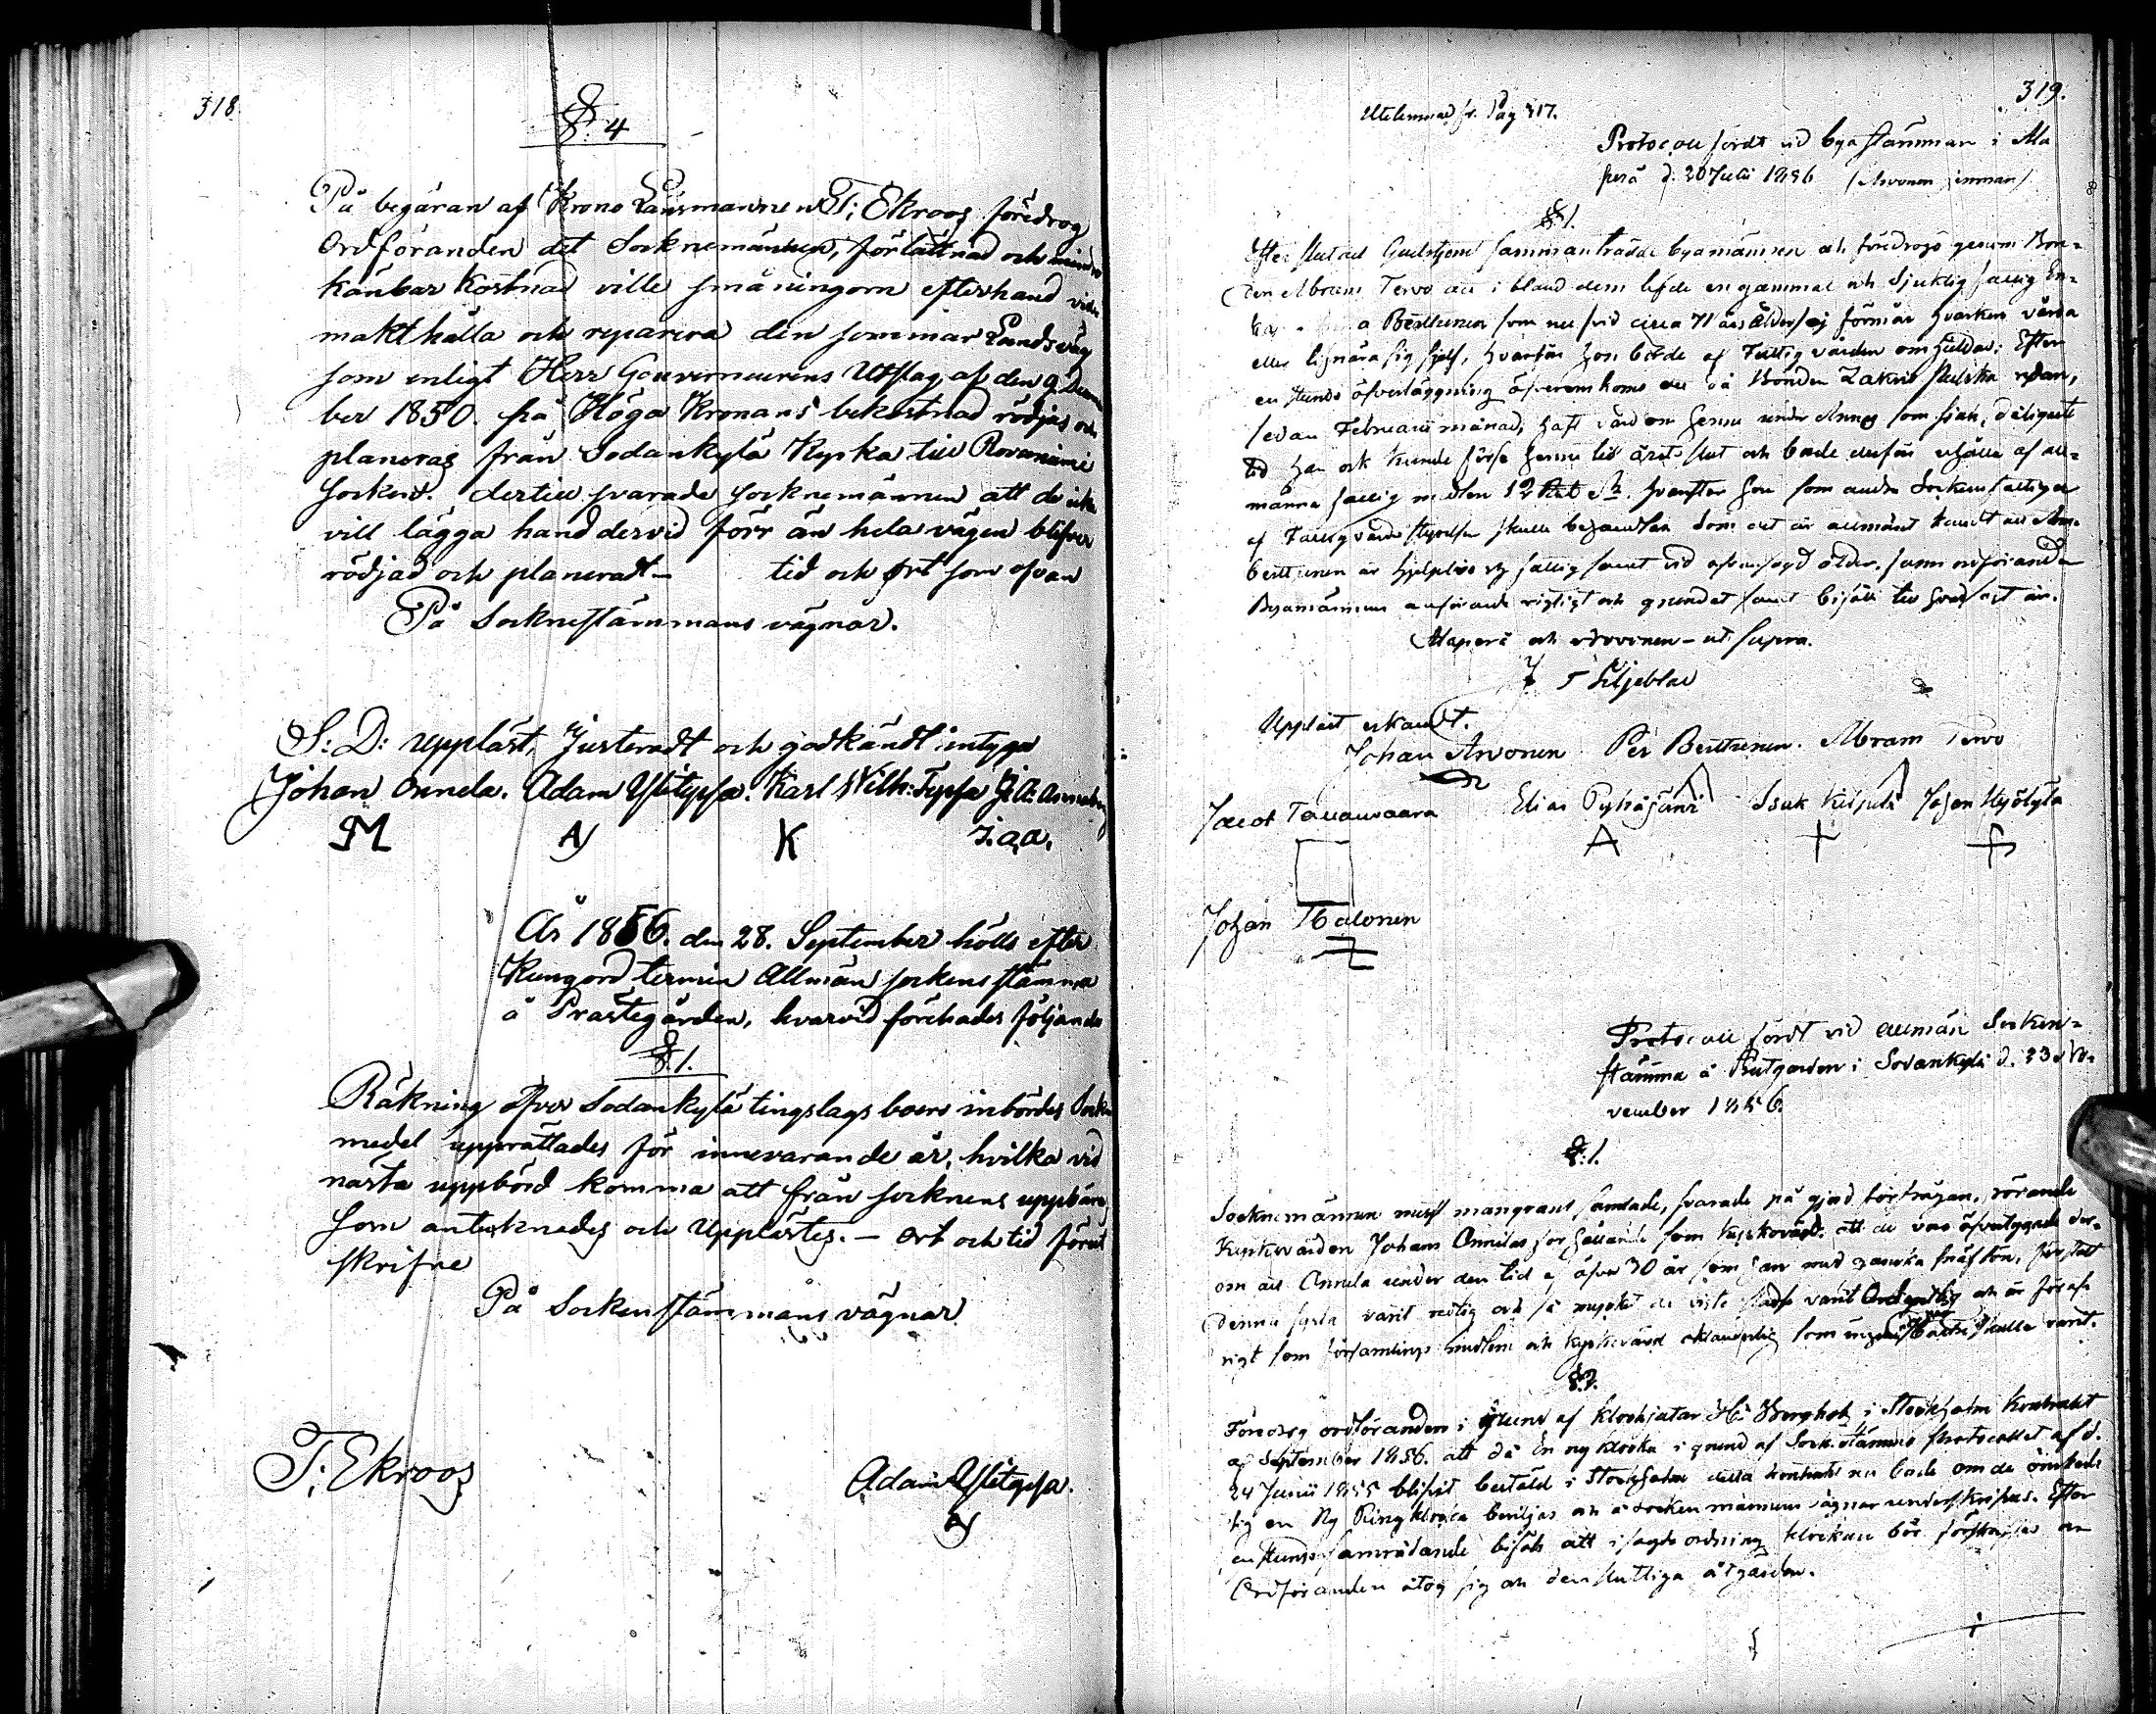 318.
§. 4
På begäran af Krono Länsmannen T: Ekroos föredrog
Ordföranden det Socknemännen, förlättnad och mindre
känbar Kostnad ville småningom efterhand vid
makthålla och reparera den sommar Landsväg
som enligt Herr Gouverneurens Utslag af den 9. Decem
ber 1850. på Höga Kronans bekostnad rödjas och
planeras från Sodankylä Kyrka till Rovaniemi
socken. dertill svarade socknemännen att de icke
vill lägga hand dervid förr än hela vägen blifver
rödjad och planeradt — tid och ort som ofvan
På Sockenstämmans vägnar.
S: D: uppläst, Justeradt och godkändt intyga
Johan Onnela. Adam Ylitepsa. Karl Wilh: Tepsa J. A:
M A K J. a, a.
År 1856. den 28. September hölls efter
Kungjord termin Allmän sockenstämma
å Prästegården, hvarvid förehades följande
§. 1.
Räkning öfver Sodankylä tingslags boers inbördes Socken
medel upprättades för innevarande år, hvilka vid
nästa uppbörd komma att från socknens uppbära
som antecknades och Upplästes. — Ort och tid förut
skrifne
På Sockenstämmans vägnar
T: Ekroos
Adam Ylitepsa.
A
319.
Utelemnad fr. Pag 317.
Protocoll fördt vid byastämman i Ala
perä d. 20 Julii 1856 /Arvonen hemman/
§ 1.
Efter slutad Gudstjenst sammanträdde byamännen och föredrogs genom Bon-
den Abram Tervo att i bland dem lefde en gammal och sjuklig fattig En-
ka Berttunen som nu vid circa 71 års ålder ej förmår hvarken vårda
eller lifnära sig sjelf, hvarför hon borde af Fattigvården omhuldas: Efter
en stunds öfverläggning öfverenskoms att då Bonden Zakris redan,
sedan Februarii månad, haft vård om henne
tid han ock kunde förse henne till årets slut och borde derför erhålla af all-
männa fattig medlen 12 Rub Sr. hvarefter hon som andra Sockens fattiga
af Fattigvårds styrelsen skulle behandlas Som det är allmänt kändt att
Berttunen är hjelplös och fattig samt vid ofvansagd ålder, fann ordföranden
Byamännens anförande rigtigt och grundat samt biföll till hvad sagt är.
Alaperä och Arvonen — ut supra.
J F Liljeblad
Uppläst erkändt.
Johan Arvonen Per Berttunen. Abram Tervo
Jacob Elias Pyhäjärvi Isak Johan Hyötylä
A
Johan Halonen
Protocoll fördt vid allmän Socken-
stämma å Prestgården i Sodankylä d. 23 No-
vember 1856.
§. 1.
Socknemännen mest mangrant samlade, svarade på gjord förfrågan, rörande
Kyrkovärden Johan Onnelas förhållande som Kyrkovärd. att de voro öfvertygade der-
om att Onnela under den tid af öfver 30 år som han med ganska lön, förestått
denna syssla varit redlig och så mycket de visste städse varit Ordentlig och är för öf-
rigt som församlings medlem och Kyrkovärd oklanderlig som ingen skulle varit.
§. 2.
Föredrog ordföranden i grund af Klockjutar Hr Bergholtz i Stockholm Kontrakt
af September 1856. att då En ny klocka i grund af Sock. stämmo Protocollet af d.
24 Junii 1855 blifvit beställd i Stockholm detta kontrakt nu borde om de önskade
sig en Ny Ringklocka beviljas och å Sockenmännens vägnar underskrifvas. Efter
en stunds samrådande biföls att i sagde ordning klockan bör förskaffas och
Ordföranden åtog sig och den slutliga åtgärden.